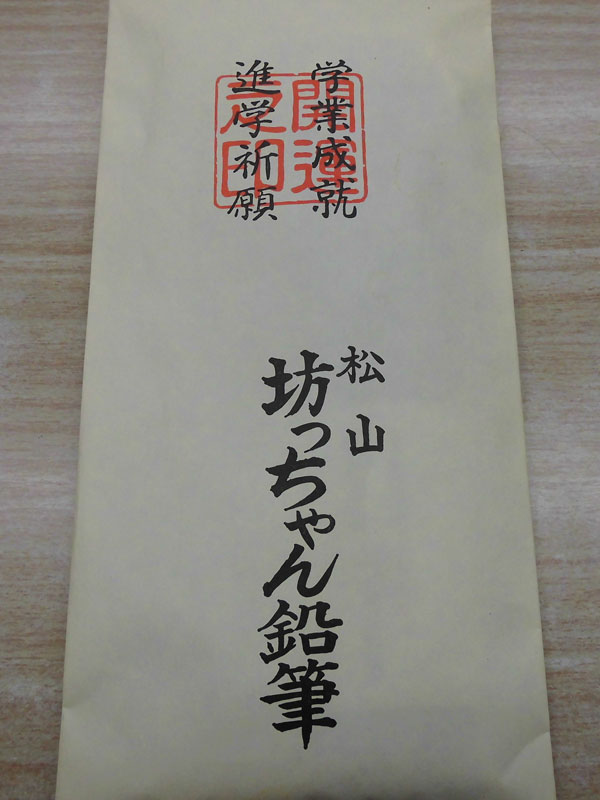 学業成就
進学祈願
開運
之印
松山
坊っちゃん鉛筆